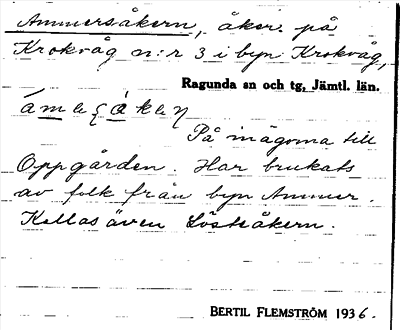 Ammersåkern, åker på
Krokvåg n:r 3 i byn Krokvåg,
Ragunda sn och tg, Jämtl. län.
På inägorna till
Oppgården. Har brukats
av folk från byn Ammer.
Kallas även Löstsåkern.
BERTIL FLEMSTRÖM 1936.